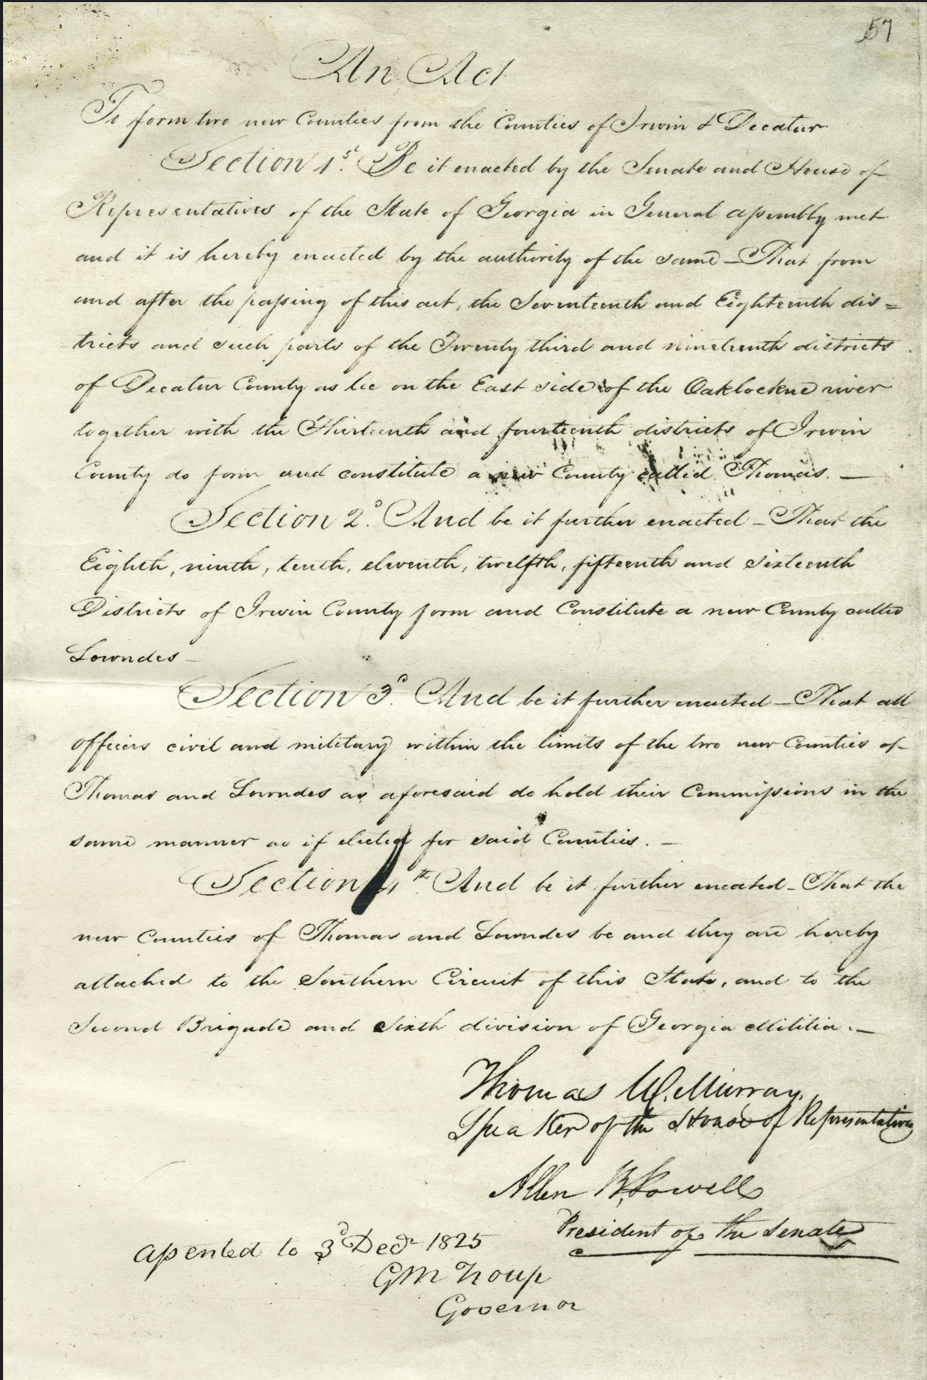 57
An Act
To form two new Counties from the Counties of Irwin & Decatur
Section 1st. Be it enacted by the Senate and House of
Representatives of the State of Georgia in General assembly met
and it is hereby enacted by the authority of the same – That from
and after the passing of this act, the Seventeenth and Eighteenth dis=
tricts and such parts of the Twenty third and nineteenth districts
of Decatur County as lie on the East side of the Oaklockne river
together with the Thirteenth and fourteenth districts of Irwin
County do form and constitute a new County called Thomas. —
Section 2d. And be it further enacted – That the
Eighth, ninth, tenth, eleventh, twelfth, fifteenth and sixteenth
Districts of Irwin County form and Constitute a new County called
Lowndes –
Section 3d. And be it further enacted – That all
officers civil and military within the limits of the two new Counties of
Thomas and Lowndes as aforesaid do hold their Commissions in the
same manner as if elected for said Counties. –
Section 4th. And be it further enacted – That the
new Counties of Thomas and Lowndes be and they are hereby
attached to the Southern Circuit of this State, and to the
Second Brigade and Sixth division of Georgia Militia. –
Thomas W. Murray,
Speaker of the House of Representatives
Allen B. Powell
President of the Senate
assented to 3d Decr 1825
GM Troup
Governor